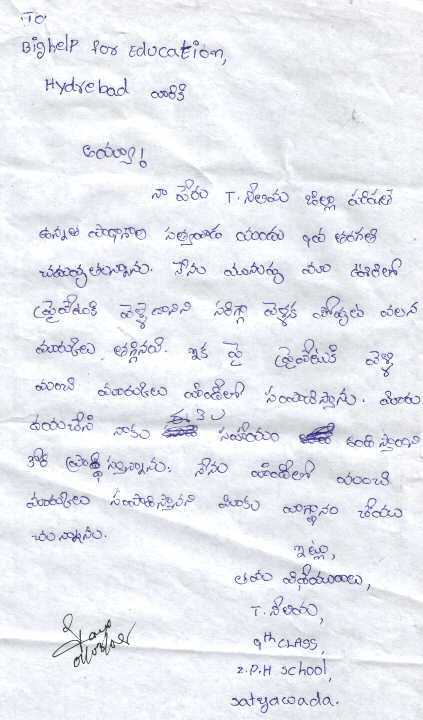 TO
Bighelp for Education,
Hydrebad వారికి
అయ్యా!
నా పేరు T. నీలిమ జిల్లా పరిషత్
ఉన్నత పాఠశాల సత్యవాడ యందు 9వ తరగతి
చదువుతున్నాను. నేను మునుపు మా ఊరిలో
ప్రైవేటుకి వెళ్ళేదానిని సరిగ్గా వెళ్లక పోవుట వలన
మార్కులు తగ్గినయి. ఇక పై ప్రైవేటుకి వెళ్ళి
మంచి మార్కులు టెంత్‌లో సంపాదిస్తాను. మీరు
దయచేసి నాకు సహాయం
కోరి ప్రార్థిస్తున్నాను. నేను టెంత్‌లో మంచి
మార్కులు సంపాదిస్తానని మీకు వాగ్దానం చేయు
చున్నాను.
ఇట్లు,
తమ విధేయురాలు,
T. నీలిమ,
9th CLASS,
Z.P.H School,
Satyawada.